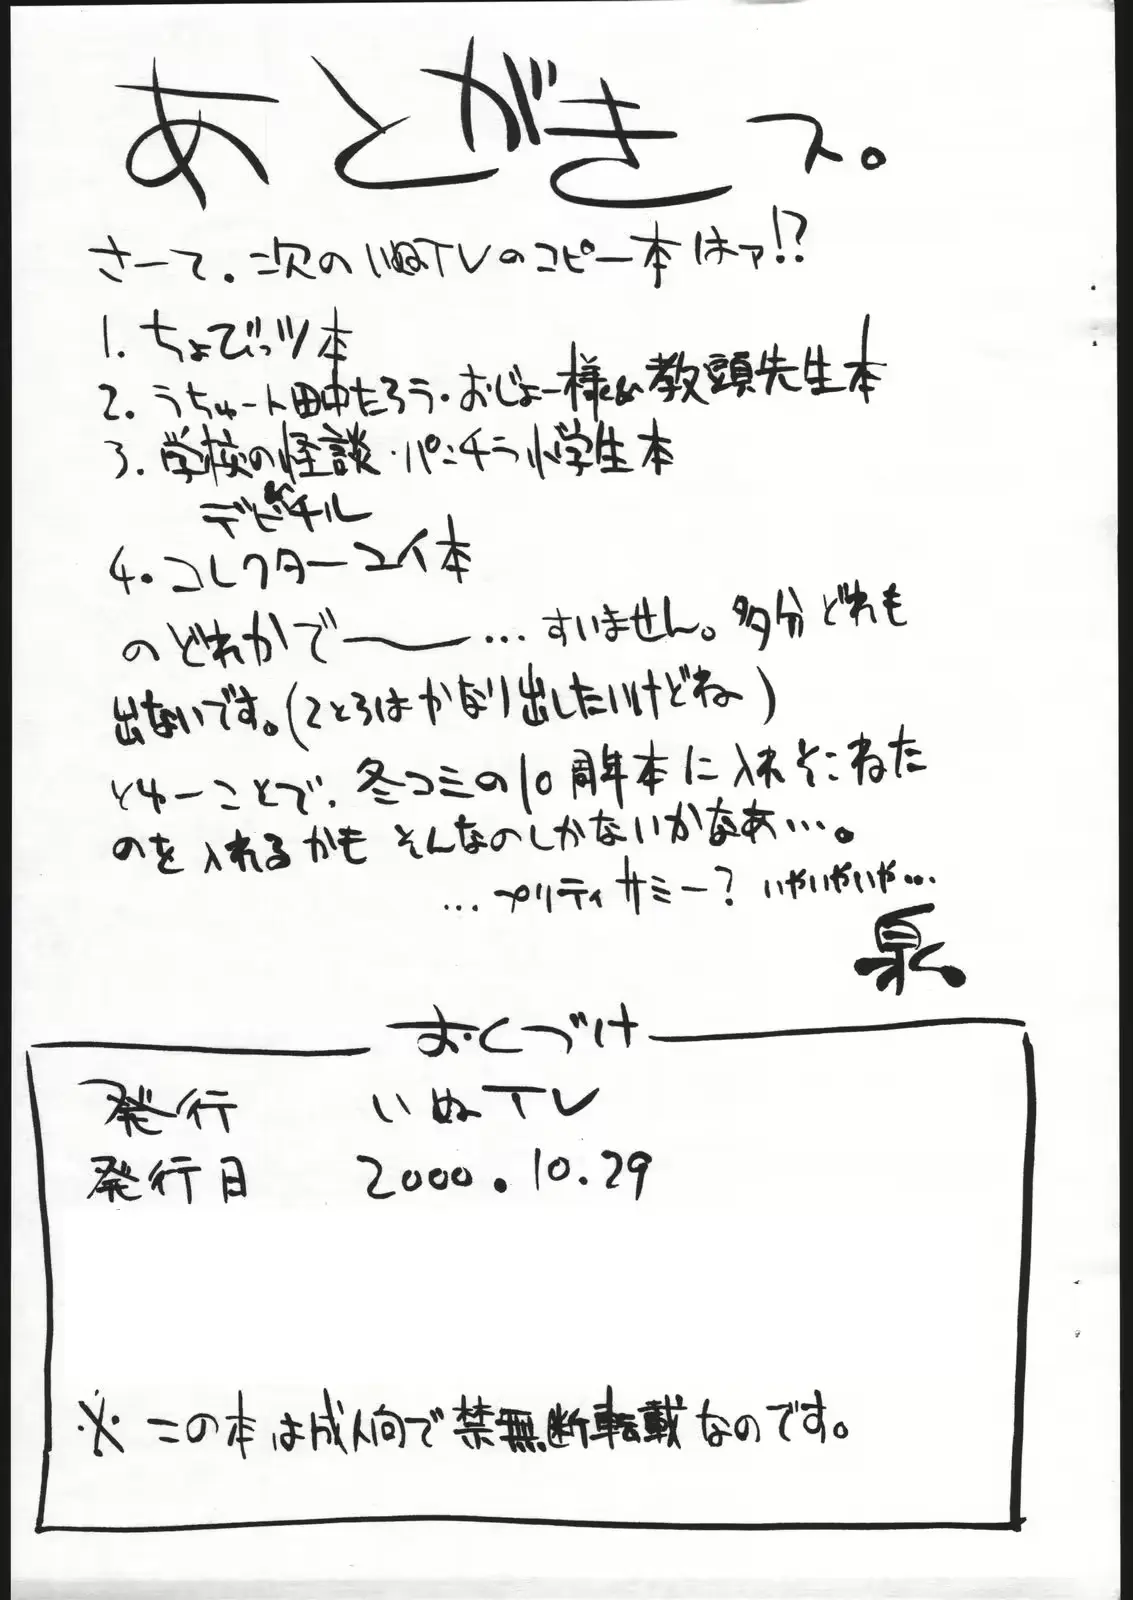 あとがきっス。
さーて、次のいぬTVのコピー本はァ!?
1. ちょびっツ本
2. うちゅー人田中たろう・おじょー様&教頭先生本
3. 学校の怪談・パンチラ小学生本
デビチル
4. コレクターユイ本
のどれかで――…すいません。多分どれも
出ないです。(2と3はかなり出したいけどね)
とゆーことで、冬コミの10周年本に入れそこねた
のを入れるかも そんなのしかないかなあ…。
…プリティサミー? いやいやいや…
泉
おくづけ
発行 いぬTV
発行日 2000.10.29
※この本は成人向で禁無断転載なのです。